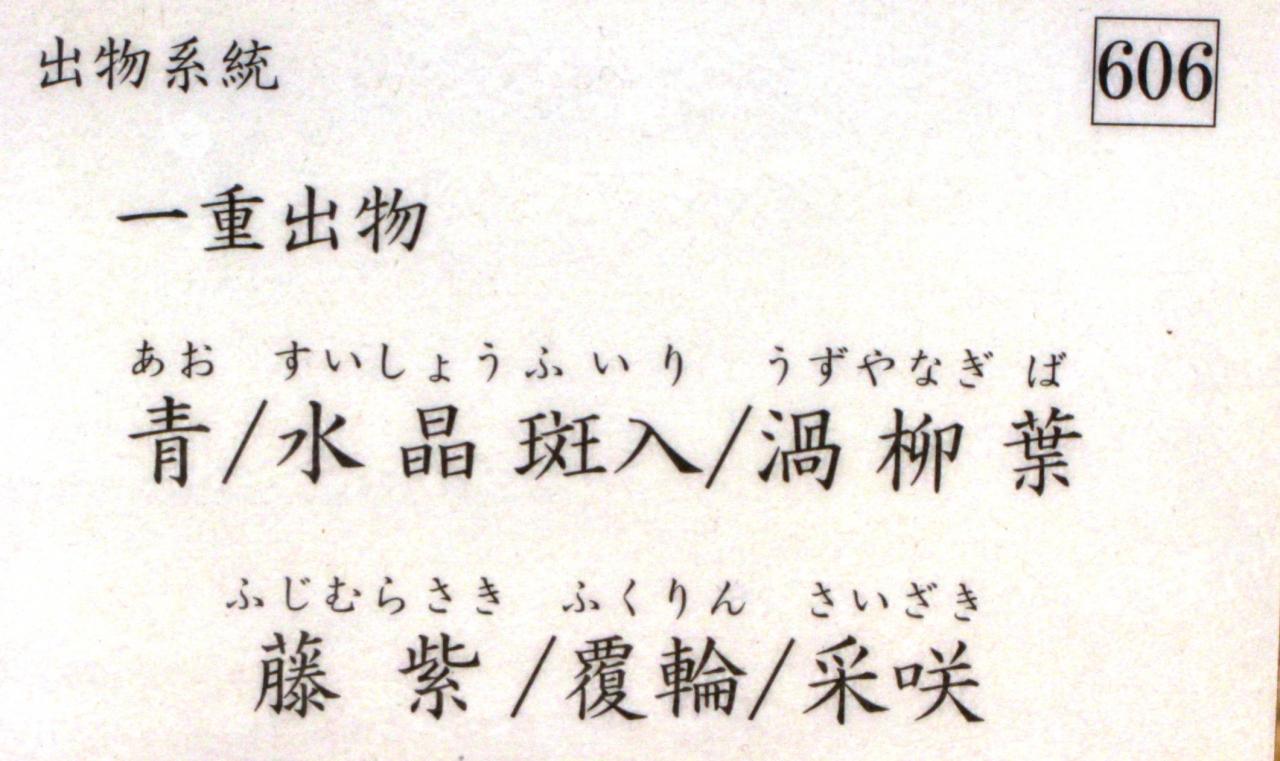 出物系統
606
一重出物
あお すいしょうふいり うずやなぎば
青/水晶斑入/渦柳葉
ふじむらさき ふくりん さいざき
藤紫/覆輪/采咲